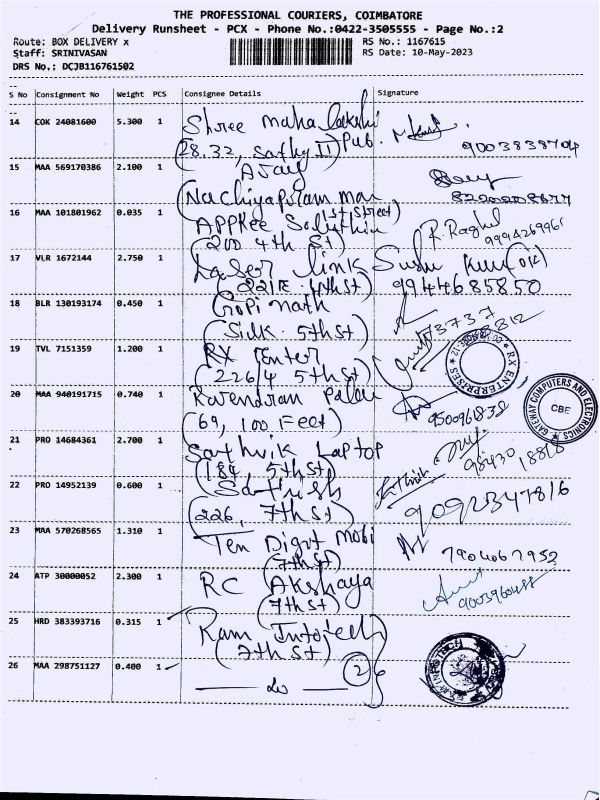 THE PROFESSIONAL COURIERS, COIMBATORE
Delivery Runsheet - PCX - Phone No.:0422-3505555 - Page No.:2
Route: BOX DELIVERY x
RS No.: 1167615
Staff: SRINIVASAN
RS Date: 10-May-2023
DRS No.: DCJB116761502
S No Consignment No Weight PCS Consignee Details Signature
14 COK 24081600 5.300 1 Shree maha lakshi
(28.32, Sathy II) Pub.
9003838704
15 MAA 569170386 2.100 1 AJay
(Nachiyapuram man
1st Street)
16 MAA 101801962 0.035 1 APPKee
(200 4th St)
R. Raghul
9994269961
17 VLR 1672144 2.750 1 Laser link
(221E. 4th St)
9944685850
18 BLR 130193174 0.450 1 Gopi nath
(Silk. 5th St)
19 TVL 7151359 1.200 1 RX Enter
(226/4 5th St)
RX ENTERPRISES
20 MAA 940191715 0.740 1 Ravendran
(69, 100 Feet)
9500961838
GATEWAY COMPUTERS AND ELECTRONICS
CBE
21 PRO 14684361 2.700 1 Sathvik Laptop
(184, 5th St)
98430 18818
22 PRO 14952139 0.600 1 Sathish
(226, 7th St)
9092347816
23 MAA 570268565 1.310 1 Ten Digit Mobi
(7th St)
7904067952
24 ATP 30000052 2.300 1 RC Akshaya
(7th St)
25 HRD 383393716 0.315 1 Ram Infotech
(7th St)
26 MAA 298751127 0.400 1
2